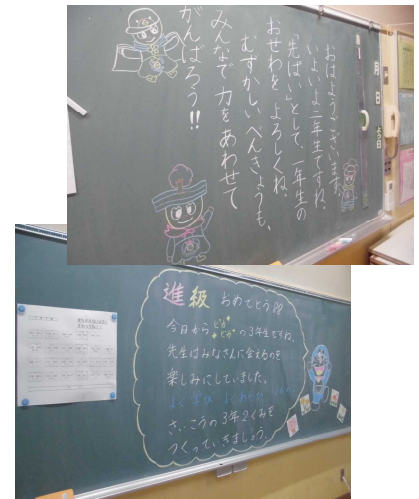 おはようございます。
いよいよ二年生ですね。
「先ぱい」として、一年生の
おせわを よろしくね。
むずかしい べんきょうも、
みんなで 力をあわせて
がんばろう!!
月
日
進級 おめでとう
今日から ピカピカ の3年生ですね。
先生はみなさんに会えるのを
楽しみにしていました。
よく学び よくあそび
さいこうの3年2くみを
つくっていきましょう。